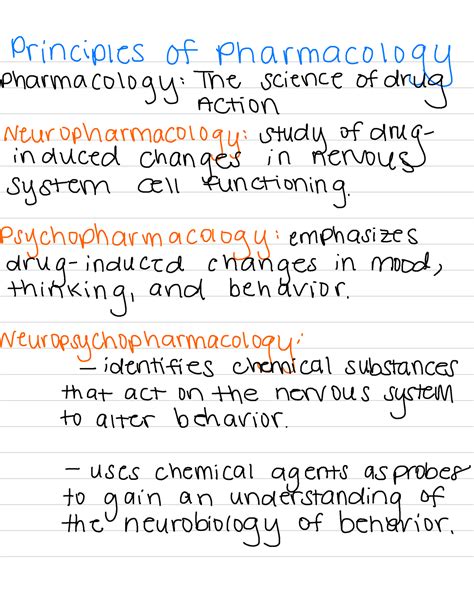 Principles of Pharmacology
Pharmacology: The science of drug
Action
Neuropharmacology: study of drug-
induced changes in nervous
system cell functioning.
Psychopharmacaogy: emphasizes
drug-induced changes in mood,
thinking, and behavior.
Neuropsychopharmacology:
– identifies chemical substances
that act on the nervous system
to alter behavior.
– uses chemical agents as probes
to gain an understanding of
the neurobiology of behavior.